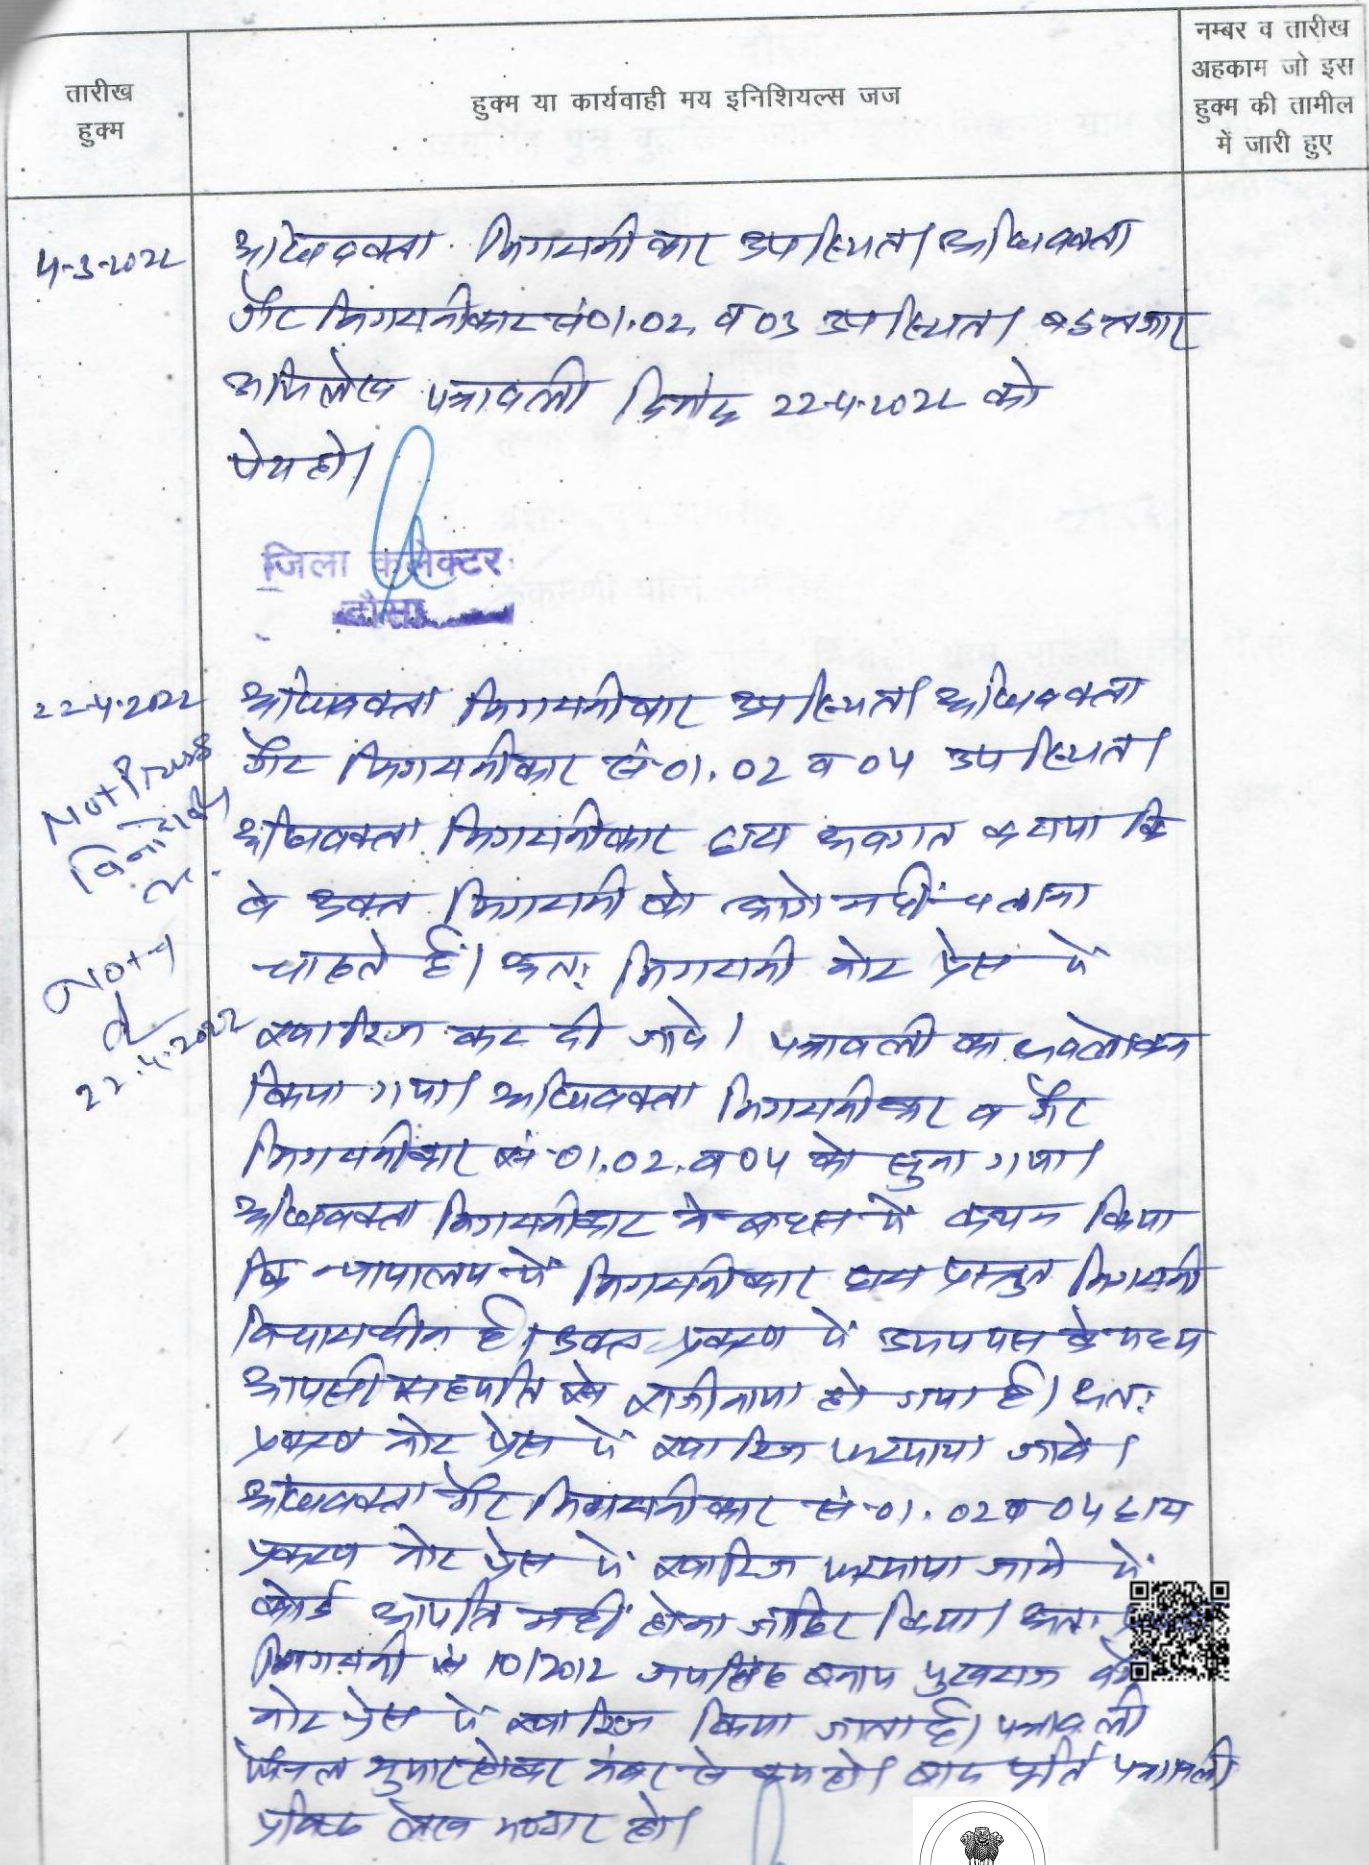 तारीख
हुक्म
हुक्म या कार्यवाही मय इनिशियल्स जज
नम्बर व तारीख
अहकाम जो इस
हुक्म की तामील
में जारी हुए
4-3-2022
अधिवक्ता निगरानीकार उपस्थित। अधिवक्ता
गैर निगरानीकार सं 01.02 व 03 उपस्थित। बइन्तजार
अभिलेख पत्रावली दिनांक 22-4-2022 को
पेश हो।
जिला कलेक्टर
दौसा
22-4-2022
अधिवक्ता निगरानीकार उपस्थित। अधिवक्ता
गैर निगरानीकार सं 01.02 व 04 उपस्थित।
अधिवक्ता निगरानीकार द्वारा अवगत कराया कि
वे उक्त निगरानी को आगे नहीं चलाना
चाहते हैं। अतः निगरानी नोट प्रेस में
खारिज कर दी जावे। पत्रावली का अवलोकन
किया गया। अधिवक्ता निगरानीकार व गैर
निगरानीकार सं 01.02.व 04 को सुना गया।
अधिवक्ता निगरानीकार ने बहस में कथन किया
कि न्यायालय में निगरानीकार द्वारा प्रस्तुत निगरानी
विचाराधीन है। उक्त प्रकरण में उभयपक्ष के मध्य
आपसी सहमति से राजीनामा हो गया है। अतः
प्रकरण नोट प्रेस में खारिज फरमाया जावे।
अधिवक्ता गैर निगरानीकार सं 01.02 व 04 द्वारा
प्रकरण नोट प्रेस में खारिज फरमाया जाने में
कोई आपत्ति नहीं होना जाहिर किया। अतः
निगरानी सं 10/2012 जयसिंह बनाम पुखराज को
नोट प्रेस में खारिज किया जाता है। पत्रावली
फैसल शुमार होकर नंबर से कम हो। बाद पूर्ति पत्रावली
प्रविष्ट लेख भण्डार हो।
Not Press
22.4.2022